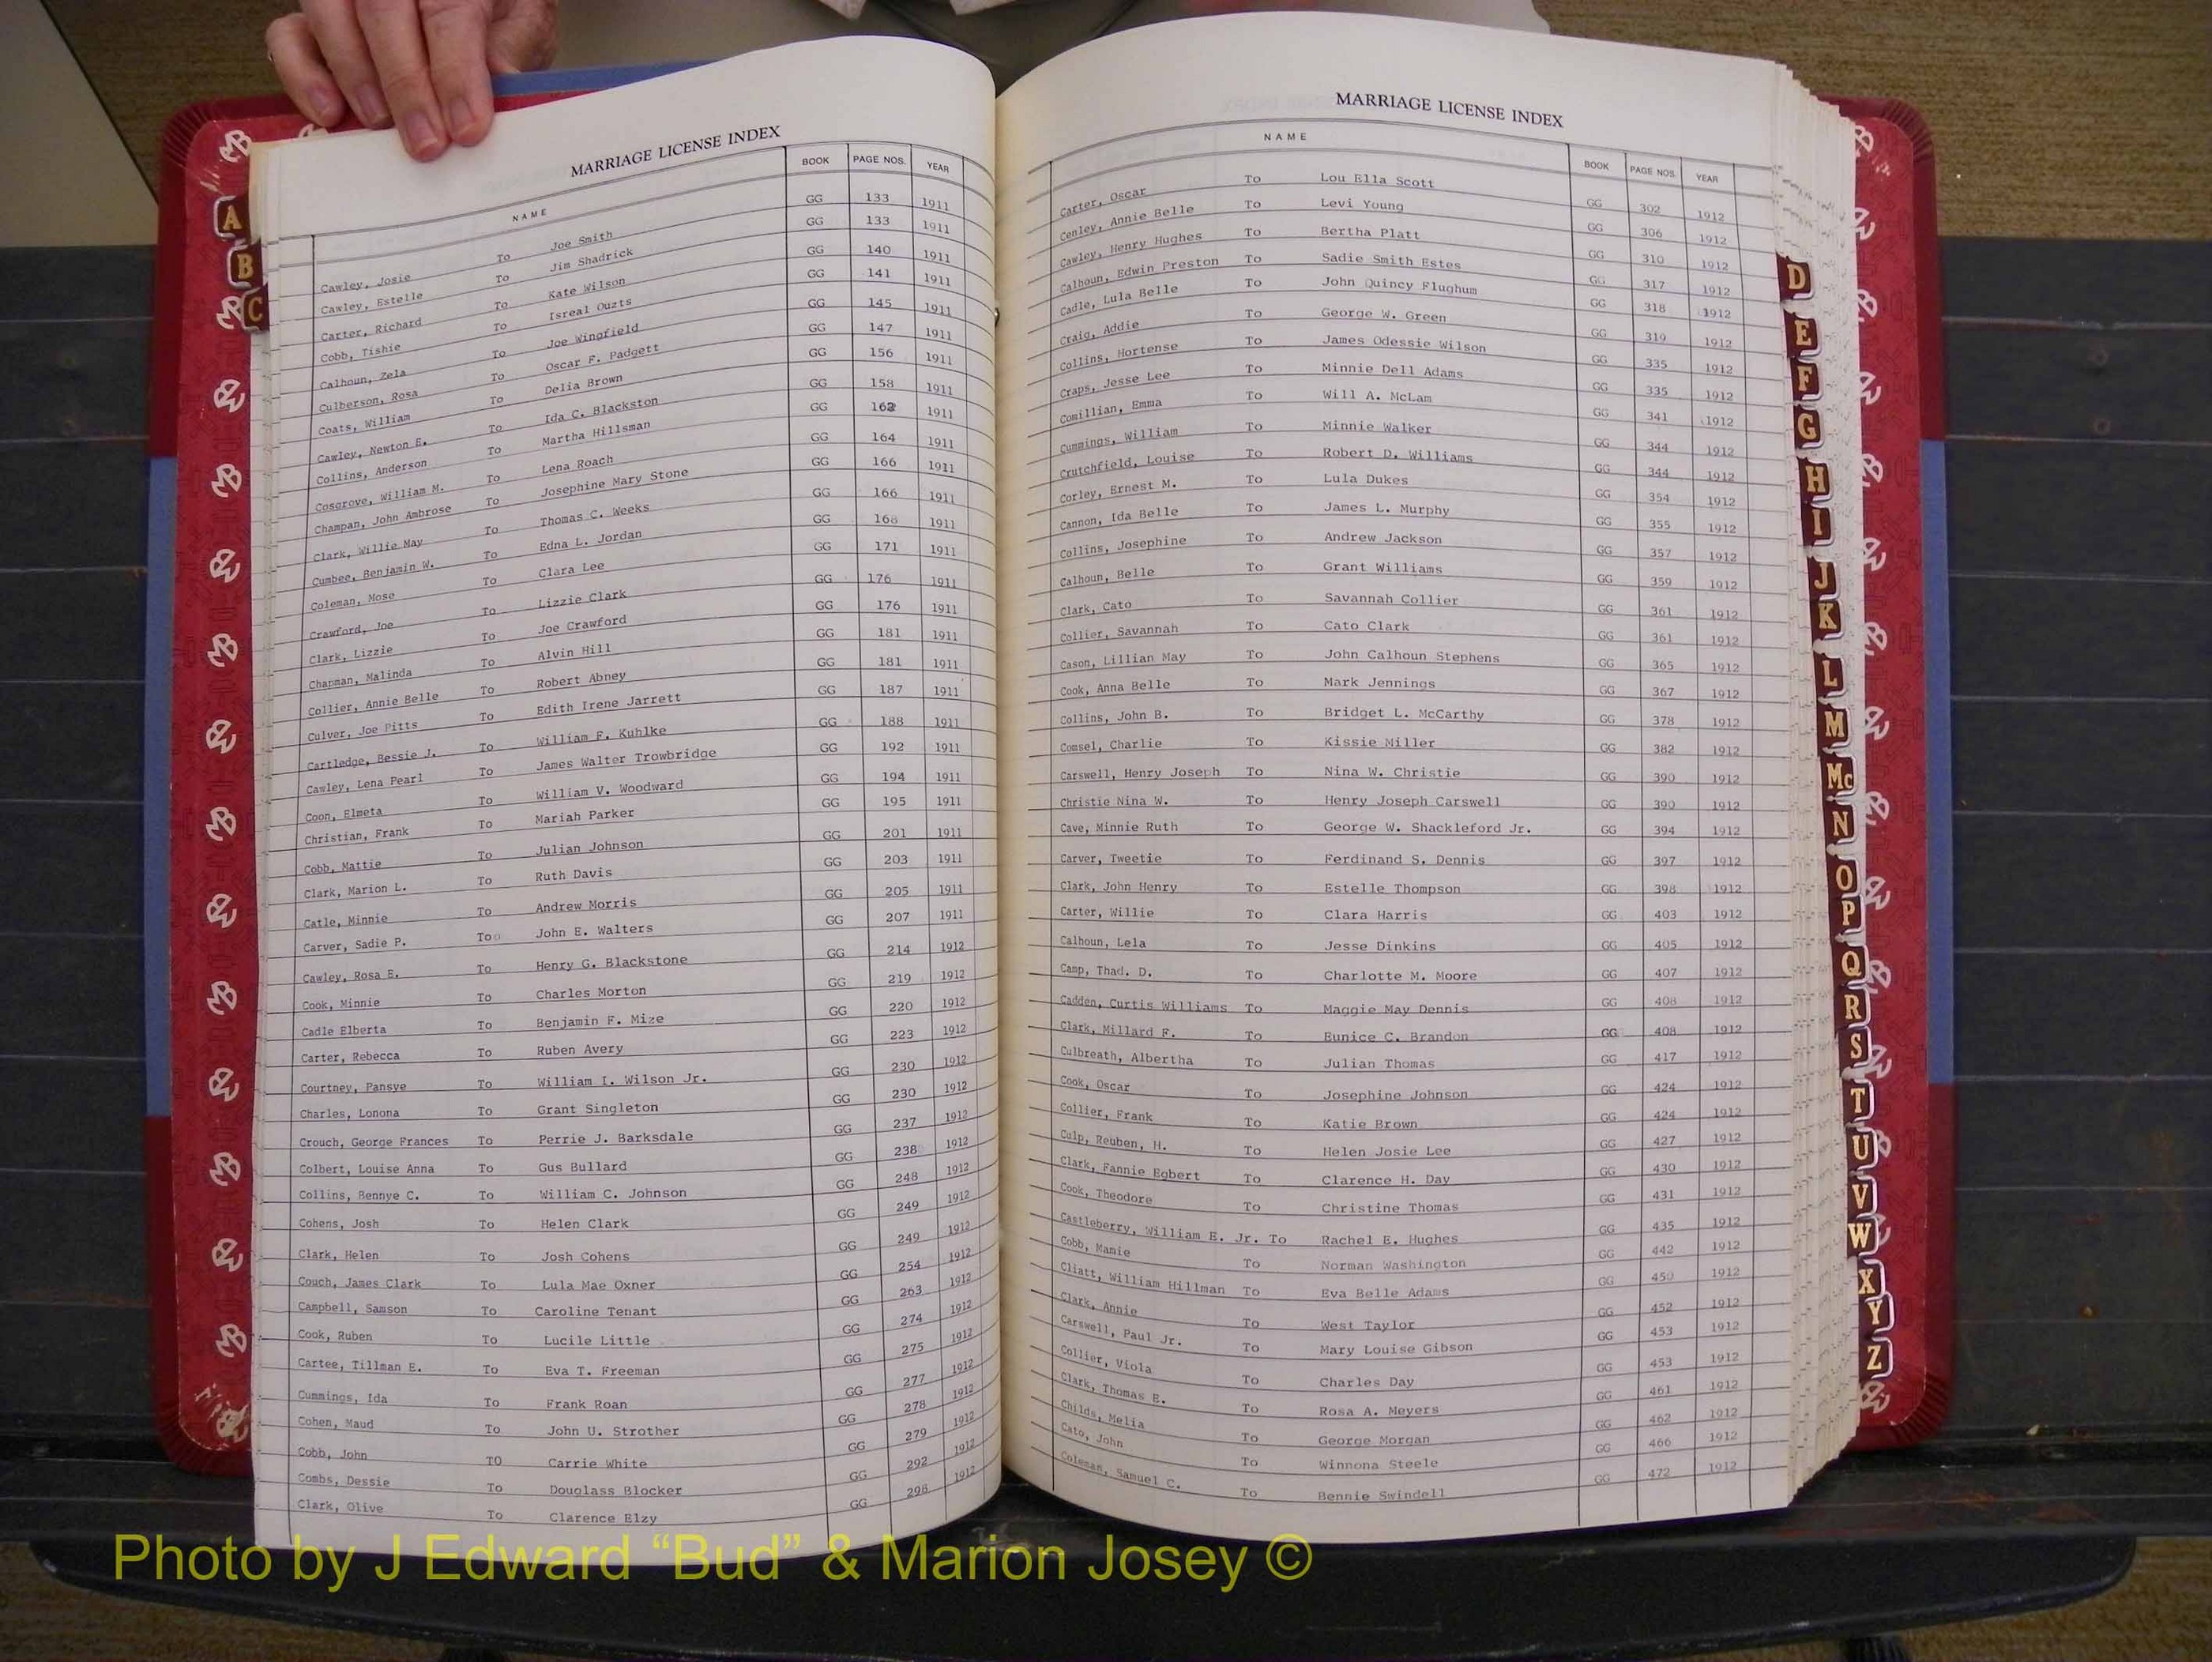 MARRIAGE LICENSE INDEX
NAME BOOK PAGE NOS. YEAR
Cawley, Josie To Joe Smith GG 133 1911
Cawley, Estelle To Jim Shadrick GG 133 1911
Carter, Richard To Kate Wilson GG 140 1911
Cobb, Tishie To Isreal Ouzts GG 141 1911
Calhoun, Zela To Joe Wingfield GG 145 1911
Culberson, Rosa To Oscar F. Padgett GG 147 1911
Coats, William To Delia Brown GG 156 1911
Cawley, Newton E. To Ida C. Blackston GG 158 1911
Collins, Anderson To Martha Hillsman GG 162 1911
Cosgrove, William M. To Lena Roach GG 164 1911
Champan, John Ambrose To Josephine Mary Stone GG 166 1911
Clark, Willie May To Thomas C. Weeks GG 166 1911
Cumbee, Benjamin W. To Edna L. Jordan GG 168 1911
Coleman, Mose To Clara Lee GG 171 1911
Crawford, Joe To Lizzie Clark GG 176 1911
Clark, Lizzie To Joe Crawford GG 176 1911
Chapman, Malinda To Alvin Hill GG 181 1911
Collier, Annie Belle To Robert Abney GG 181 1911
Culver, Joe Pitts To Edith Irene Jarrett GG 187 1911
Cartledge, Bessie J. To William F. Kuhlke GG 188 1911
Cawley, Lena Pearl To James Walter Trowbridge GG 192 1911
Coon, Elmeta To William V. Woodward GG 194 1911
Christian, Frank To Mariah Parker GG 195 1911
Cobb, Mattie To Julian Johnson GG 201 1911
Clark, Marion L. To Ruth Davis GG 203 1911
Catle, Minnie To Andrew Morris GG 205 1911
Carver, Sadie P. To John E. Walters GG 207 1911
Cawley, Rosa E. To Henry G. Blackstone GG 214 1912
Cook, Minnie To Charles Morton GG 219 1912
Cadle Elberta To Benjamin F. Mize GG 220 1912
Carter, Rebecca To Ruben Avery GG 223 1912
Courtney, Pansye To William I. Wilson Jr. GG 230 1912
Charles, Lonona To Grant Singleton GG 230 1912
Crouch, George Frances To Perrie J. Barksdale GG 237 1912
Colbert, Louise Anna To Gus Bullard GG 238 1912
Collins, Bennye C. To William C. Johnson GG 248 1912
Cohens, Josh To Helen Clark GG 249 1912
Clark, Helen To Josh Cohens GG 249 1912
Couch, James Clark To Lula Mae Oxner GG 254 1912
Campbell, Samson To Caroline Tenant GG 263 1912
Cook, Ruben To Lucile Little GG 274 1912
Cartee, Tillman E. To Eva T. Freeman GG 275 1912
Cummings, Ida To Frank Roan GG 277 1912
Cohen, Maud To John U. Strother GG 278 1912
Cobb, John TO Carrie White GG 279 1912
Combs, Dessie To Douglass Blocker GG 292 1912
Clark, Olive To Clarence Elzy GG 296 1912
MARRIAGE LICENSE INDEX
NAME BOOK PAGE NOS. YEAR
Carter, Oscar To Lou Ella Scott GG 302 1912
Cenley, Annie Belle To Levi Young GG 306 1912
Cawley, Henry Hughes To Bertha Platt GG 310 1912
Calhoun, Edwin Preston To Sadie Smith Estes GG 317 1912
Cadle, Lula Belle To John Quincy Flughum GG 318 1912
Craig, Addie To George W. Green GG 319 1912
Collins, Hortense To James Odessie Wilson GG 335 1912
Craps, Jesse Lee To Minnie Dell Adams GG 335 1912
Comillian, Emma To Will A. McLam GG 341 1912
Cummings, William To Minnie Walker GG 344 1912
Crutchfield, Louise To Robert D. Williams GG 344 1912
Corley, Ernest M. To Lula Dukes GG 354 1912
Cannon, Ida Belle To James L. Murphy GG 355 1912
Collins, Josephine To Andrew Jackson GG 357 1912
Calhoun, Belle To Grant Williams GG 359 1912
Clark, Cato To Savannah Collier GG 361 1912
Collier, Savannah To Cato Clark GG 361 1912
Cason, Lillian May To John Calhoun Stephens GG 365 1912
Cook, Anna Belle To Mark Jennings GG 367 1912
Collins, John B. To Bridget L. McCarthy GG 378 1912
Comsel, Charlie To Kissie Miller GG 382 1912
Carswell, Henry Joseph To Nina W. Christie GG 390 1912
Christie Nina W. To Henry Joseph Carswell GG 390 1912
Cave, Minnie Ruth To George W. Shackleford Jr. GG 394 1912
Carver, Tweetie To Ferdinand S. Dennis GG 397 1912
Clark, John Henry To Estelle Thompson GG 398 1912
Carter, Willie To Clara Harris GG 403 1912
Calhoun, Lela To Jesse Dinkins GG 405 1912
Camp, Thad. D. To Charlotte M. Moore GG 407 1912
Cadden, Curtis Williams To Maggie May Dennis GG 408 1912
Clark, Millard F. To Eunice C. Brandon GG 408 1912
Culbreath, Albertha To Julian Thomas GG 417 1912
Cook, Oscar To Josephine Johnson GG 424 1912
Collier, Frank To Katie Brown GG 424 1912
Culp, Reuben, H. To Helen Josie Lee GG 427 1912
Clark, Fannie Egbert To Clarence H. Day GG 430 1912
Cook, Theodore To Christine Thomas GG 431 1912
Castleberry, William E. Jr. To Rachel E. Hughes GG 435 1912
Cobb, Mamie To Norman Washington GG 442 1912
Cliatt, William Hillman To Eva Belle Adams GG 450 1912
Clark, Annie To West Taylor GG 452 1912
Carswell, Paul Jr. To Mary Louise Gibson GG 453 1912
Collier, Viola To Charles Day GG 453 1912
Clark, Thomas E. To Rosa A. Meyers GG 461 1912
Childs, Melia To George Morgan GG 462 1912
Cato, John To Winnona Steele GG 466 1912
Coleman, Samuel C. To Bennie Swindell GG 472 1912
A
B
C
D
E
F
G
H
I
J
K
L
M
Mc
N
O
P
Q
R
S
T
U
V
W
X
Y
Z
Photo by J Edward “Bud” & Marion Josey ©